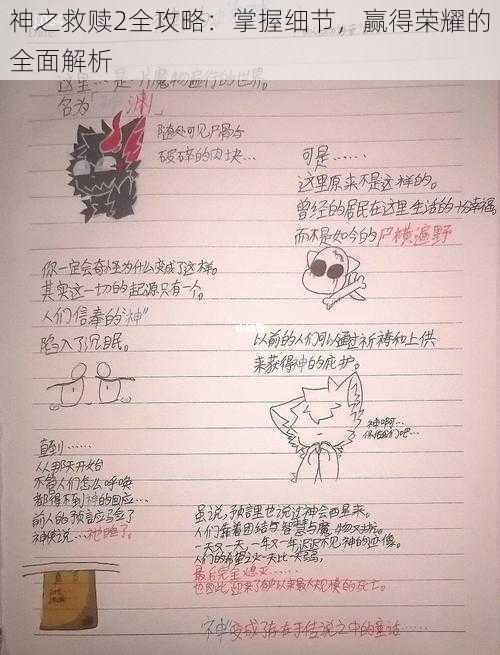 神之救赎2全攻略：掌握细节，赢得荣耀的
全面解析
这里…是一片魔物遍行的世界。
名为「渊」
随处可见尸骨与
破碎的肉块…
可是……
这里原来不是这样的。
曾经的居民在这里生活的十分幸福
而不是如今的尸横遍野
你一定会奇怪为什么变成了这样。
其实这一切的起源只有一个。
人们信奉的“神”
陷入了沉眠。
以前的人们可以通过祈祷和上供
来获得神的庇护。
神啊…
保佑我们吧…
直到……
从那天开始
不管人们怎么呼唤
都得不到神的回应…
前人的预言应验了
神使说…祂睡了。
虽说，预言里也说过神会再来。
人们靠着团结与智慧与魔物对抗。
一天又一天，一年又一年迟迟不见神的迹像。
人们的希望也一天比一天
最后完全
也因此迎来了有史以来最大规模的死亡。
“神”变成了存在于传说之中的童话……